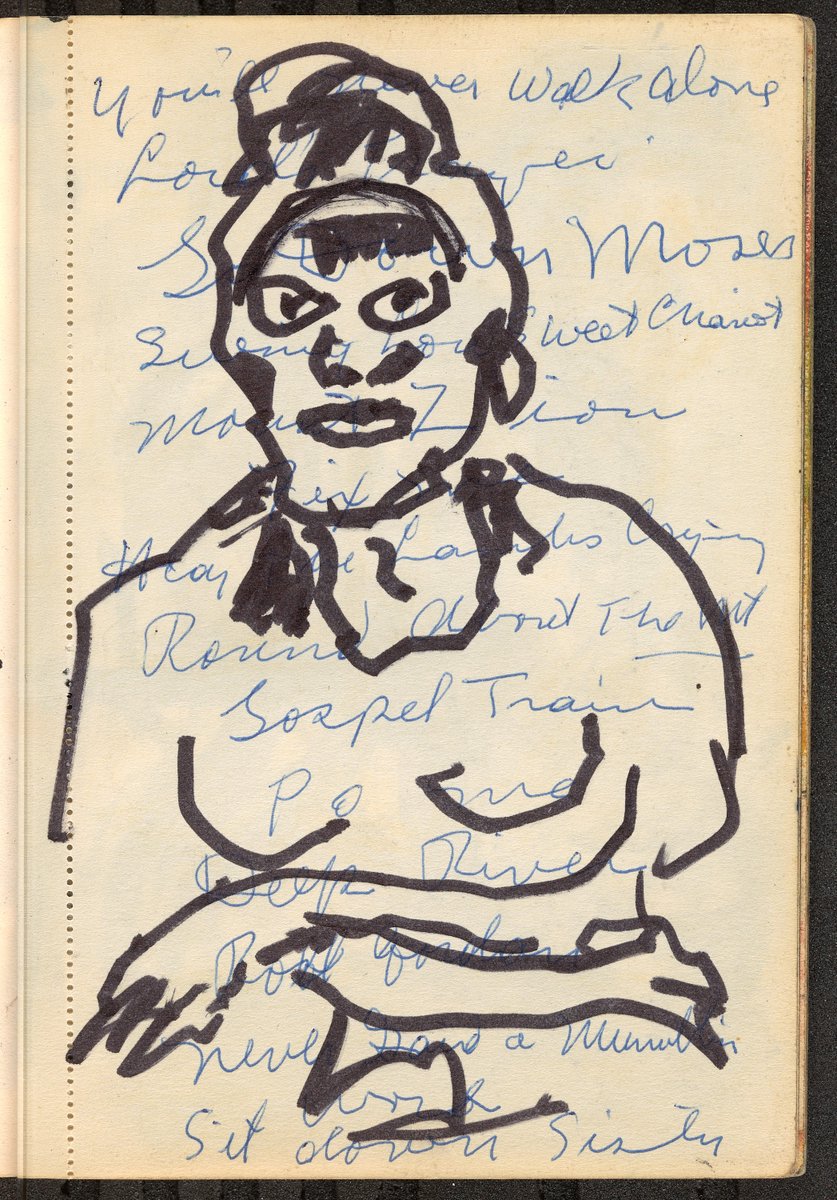 You'll never Walk alone
Lord's Prayer
Go Down Moses
Swing Low Sweet Chariot
Mount Zion
Fix me
Hear the Lambs Crying
Round about The Mt
Gospel Train
Po me
Deep River
Roll Jordan
never Said a Mumblin
Word
Sit down Sister